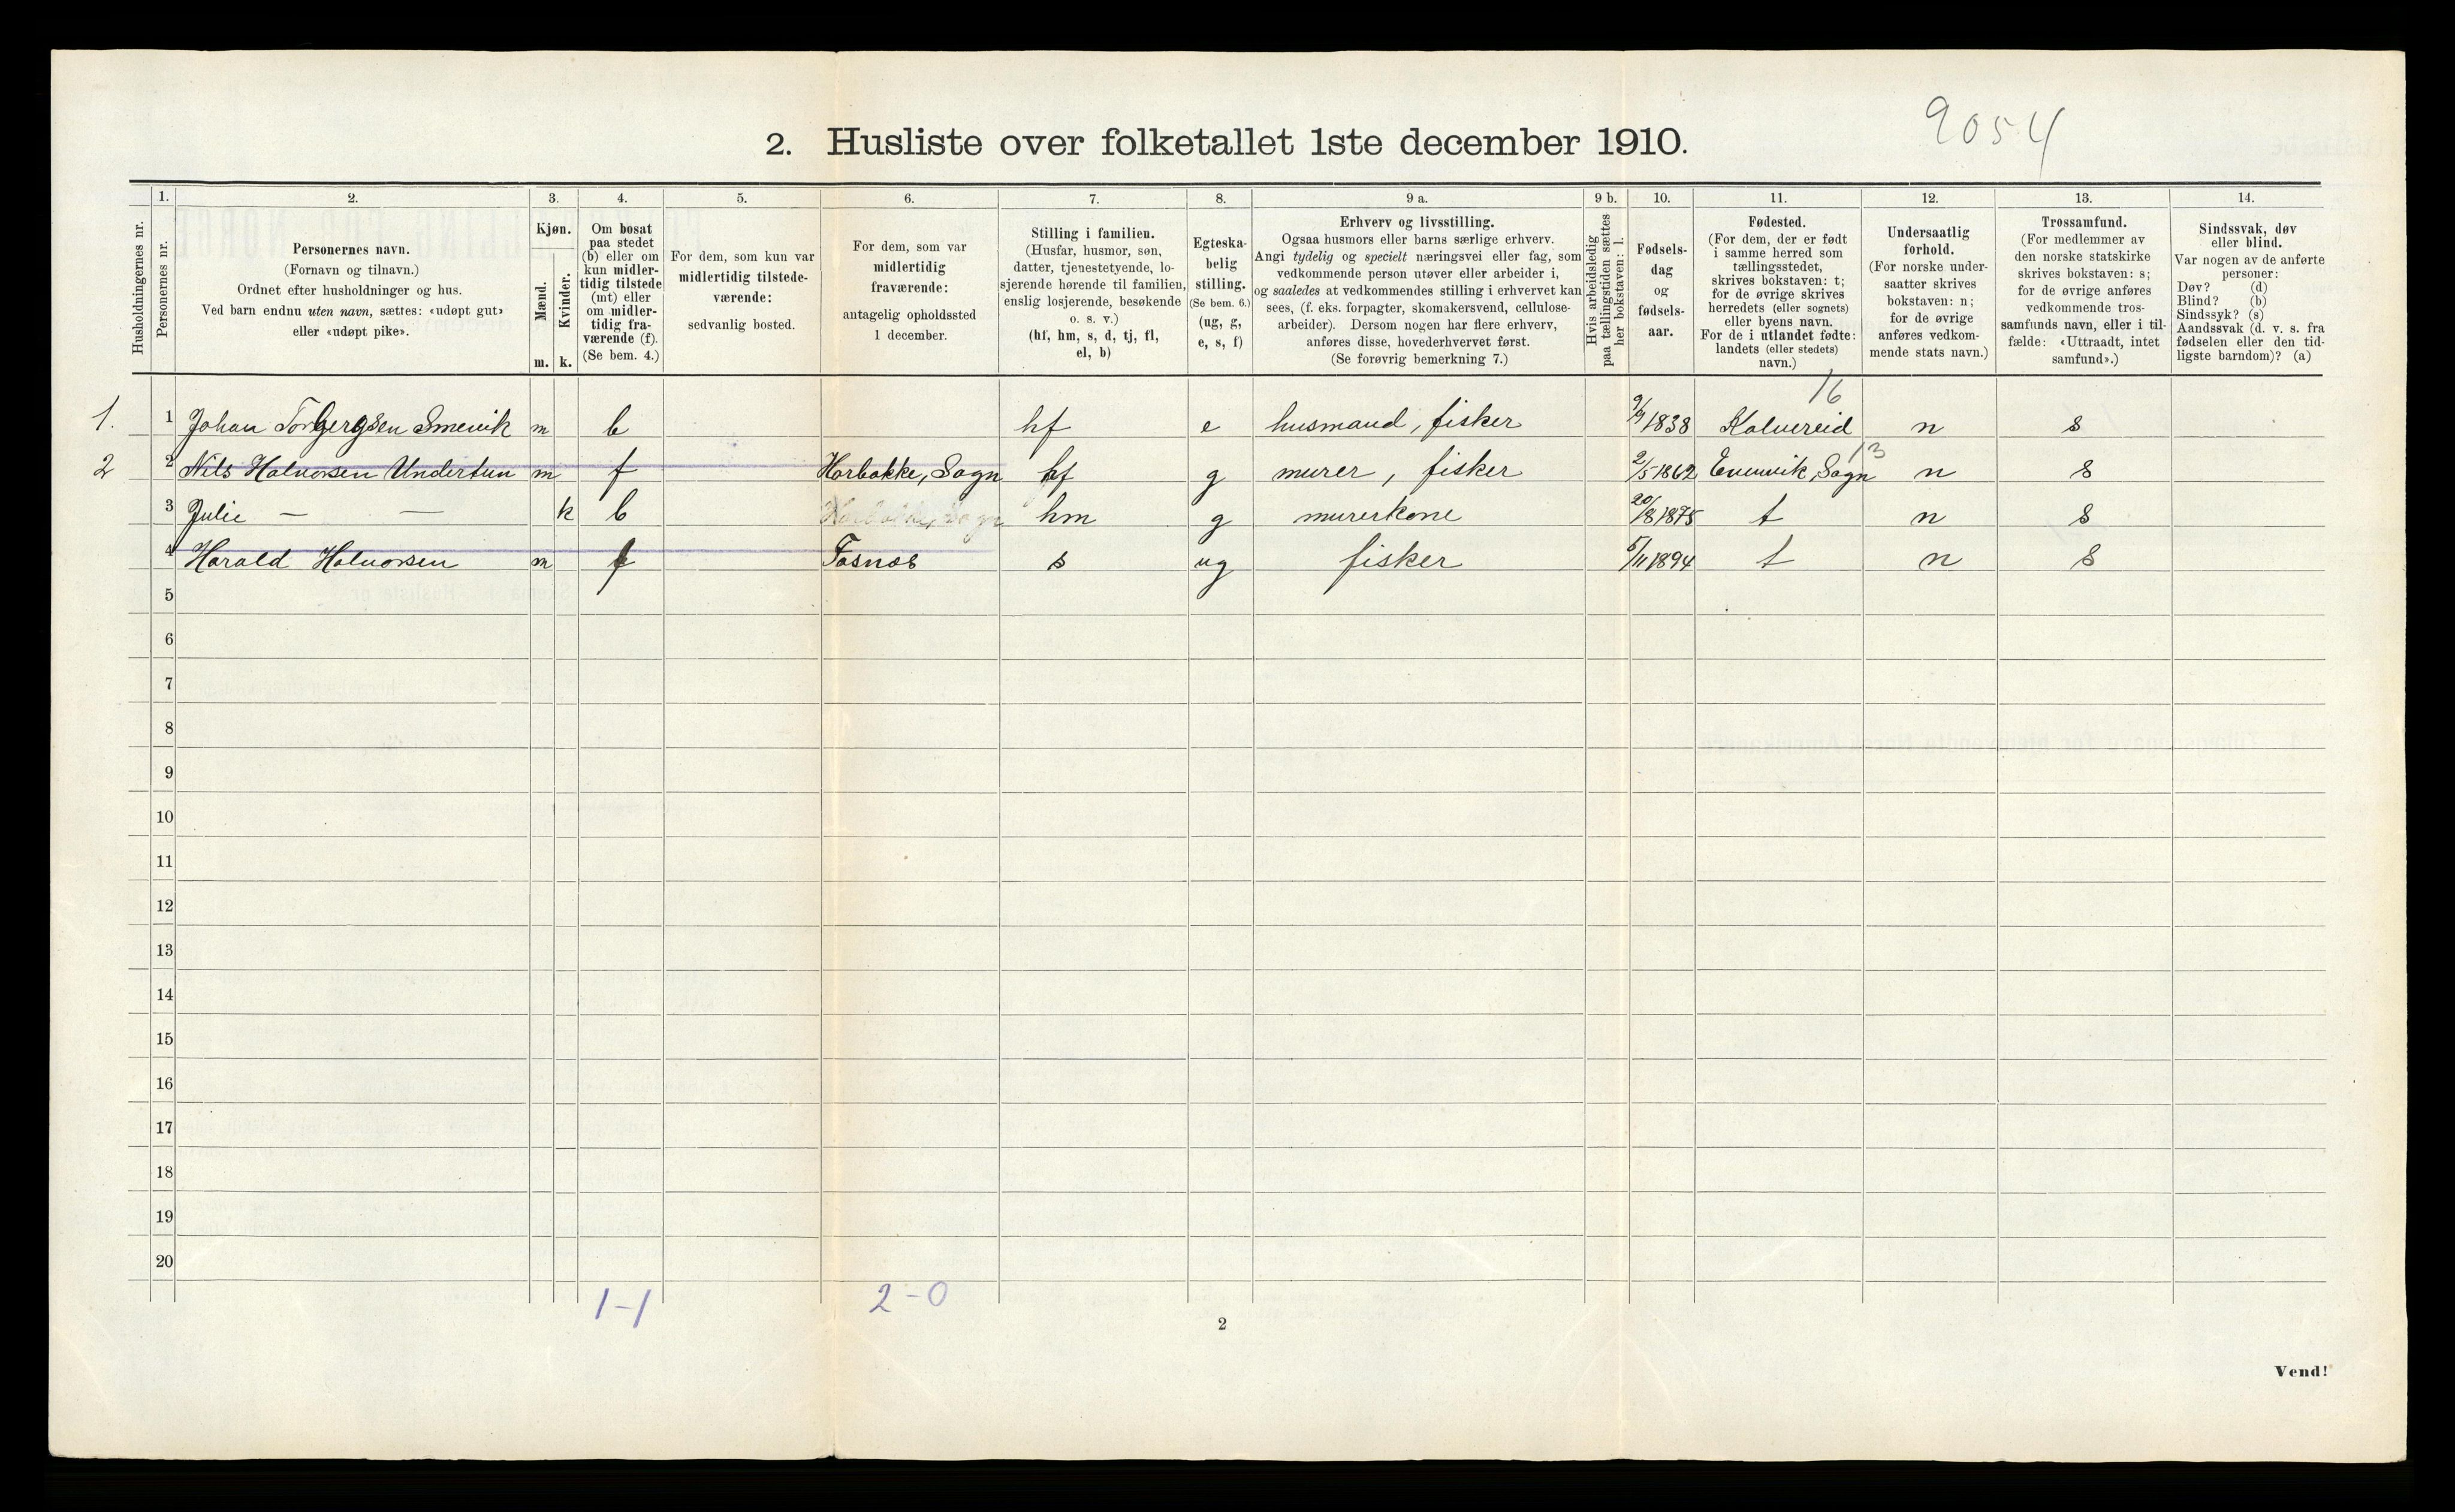 9054
2. Husliste over folketallet 1ste december 1910.
1. 2. 3. 4. 5. 6. 7. 8. 9 a. 9 b. 10. 11. 12. 13. 14.
Husholdningernes nr.
Personernes nr.
Personernes navn.
(Fornavn og tilnavn.)
Ordnet efter husholdninger og hus.
Ved barn endnu uten navn, sættes: «udøpt gut»
eller «udøpt pike».
Kjøn.
Mænd.
Kvinder.
m. k.
Om bosat
paa stedet
(b) eller om
kun midler-
tidig tilstede
(mt) eller
om midler-
tidig fra-
værende (f).
(Se bem. 4.)
For dem, som kun var
midlertidig tilstede-
værende:
sedvanlig bosted.
For dem, som var
midlertidig
fraværende:
antagelig opholdssted
1 december.
Stilling i familien.
(Husfar, husmor, søn,
datter, tjenestetyende, lo-
sjerende hørende til familien,
enslig losjerende, besøkende
o. s. v.)
(hf, hm, s, d, tj, fl,
el, b)
Egteska-
belig
stilling.
(Se bem. 6.)
(ug, g,
e, s, f)
Erhverv og livsstilling.
Ogsaa husmors eller barns særlige erhverv.
Angi tydelig og specielt næringsvei eller fag, som
vedkommende person utøver eller arbeider i,
og saaledes at vedkommendes stilling i erhvervet kan
sees, (f. eks. forpagter, skomakersvend, cellulose-
arbeider). Dersom nogen har flere erhverv,
anføres disse, hovederhvervet først.
(Se forøvrig bemerkning 7.)
Hvis arbeidsledig
paa tællingstiden sættes
her bokstaven: l.
Fødsels-
dag
og
fødsels-
aar.
Fødested.
(For dem, der er født
i samme herred som
tællingsstedet,
skrives bokstaven: t;
for de øvrige skrives
herredets (eller sognets)
eller byens navn.
For de i utlandet fødte:
landets (eller stedets)
navn.)
Undersaatlig
forhold.
(For norske under-
saatter skrives
bokstaven: n;
for de øvrige
anføres vedkom-
mende stats navn.)
Trossamfund.
(For medlemmer av
den norske statskirke
skrives bokstaven: s;
for de øvrige anføres
vedkommende tros-
samfunds navn, eller i til-
fælde: «Uttraadt, intet
samfund».)
Sindssvak, døv
eller blind.
Var nogen av de anførte
personer:
Døv? (d)
Blind? (b)
Sindssyk? (s)
Aandssvak (d. v. s. fra
fødselen eller den tid-
ligste barndom)? (a)
16
1. 1 Johan Torbergsen Smevik m b hf e husmand, fisker 9/9 1838 Kolvereid n s
13
2 2 Nils Halvorsen Undertun m f Horbakke, Sogn hf g murer, fisker 2/5 1862 Evenvik, Sogn n s
3 Julie — — k b Horbakke, Sogn hm g murerkone 20/8 1875 t n s
4 Harald Halvorsen m f Fosnes s ug fisker 5/11 1894 t n s
5
6
7
8
9
10
11
12
13
14
15
16
17
18
19
20
1-1 2-0
2
Vend!